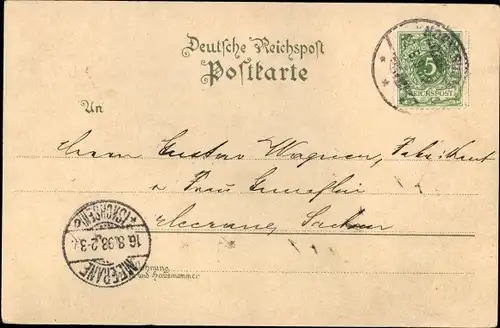 Deutsche Reichspost
Postkarte
5
REICHSPOST
An
Herrn Gustav Wagner, Fabrikant
Frau Gemahlin
Meerane, Sachsen
(SACHSEN)
16.8.98. 2-3
MEERANE
Wohnung
und Hausnummer